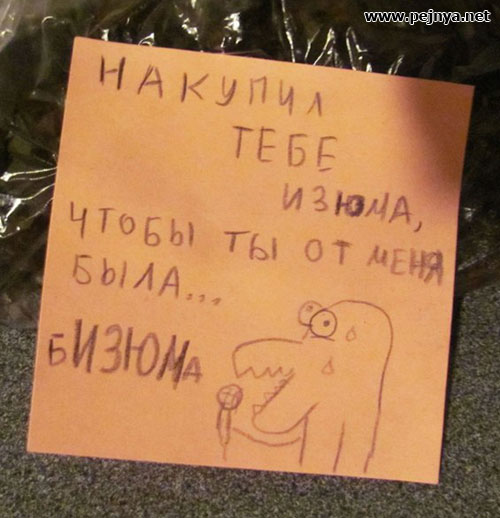 www.pejnya.net
НАКУПИЛ
ТЕБЕ
ИЗЮМА,
ЧТОБЫ ТЫ ОТ МЕНЯ
БЫЛА...
БИЗЮМА